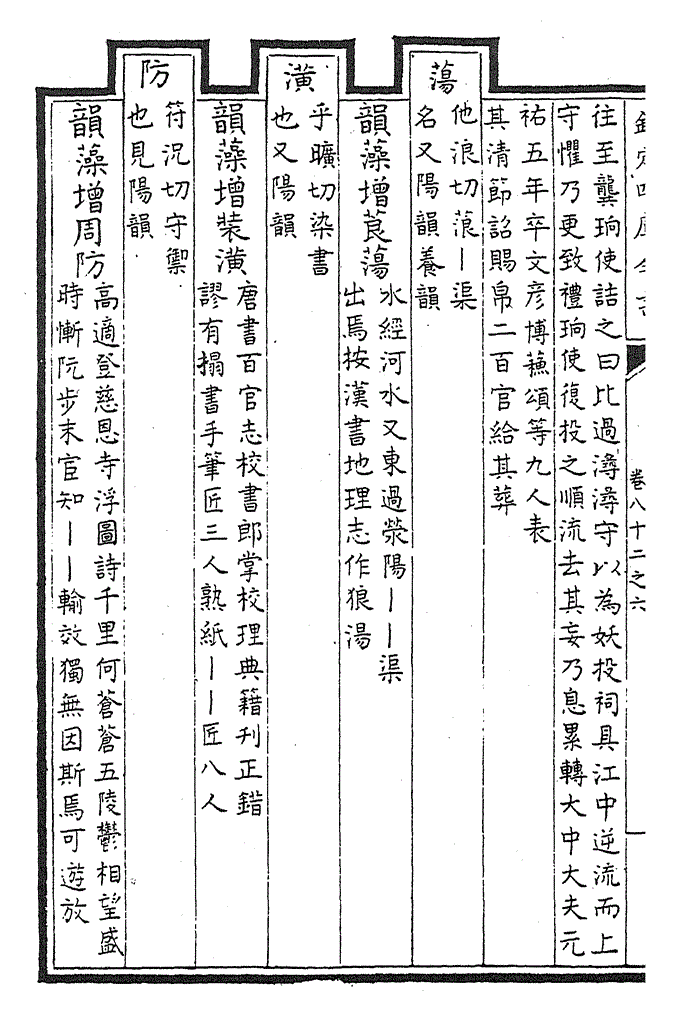 欽定四庫全書
卷八十二之六
往至龔珦使詰之曰比過潯潯守以為妖投祠具江中逆流而上
守懼乃更致禮珦使復投之順流去其妄乃息累轉大中大夫元
祐五年卒文彦博蘓頌等九人表
其清節詔賜帛二百官給其葬
蕩
他浪切蒗丨渠
名又陽韻養韻
韻藻增莨蕩
水經河水又東過滎陽丨丨渠
出焉按漢書地理志作狼湯
潢
乎曠切染書
也又陽韻
韻藻增裝潢
唐書百官志校書郎掌校理典籍刋正錯
謬有搨書手筆匠三人熟紙丨丨匠八人
防
符况切守禦
也見陽韻
韻藻增周防
高適登慈恩寺浮圖詩千里何蒼蒼五陵鬱相望盛
時慚阮步末宦知丨丨輸效獨無因斯焉可遊放